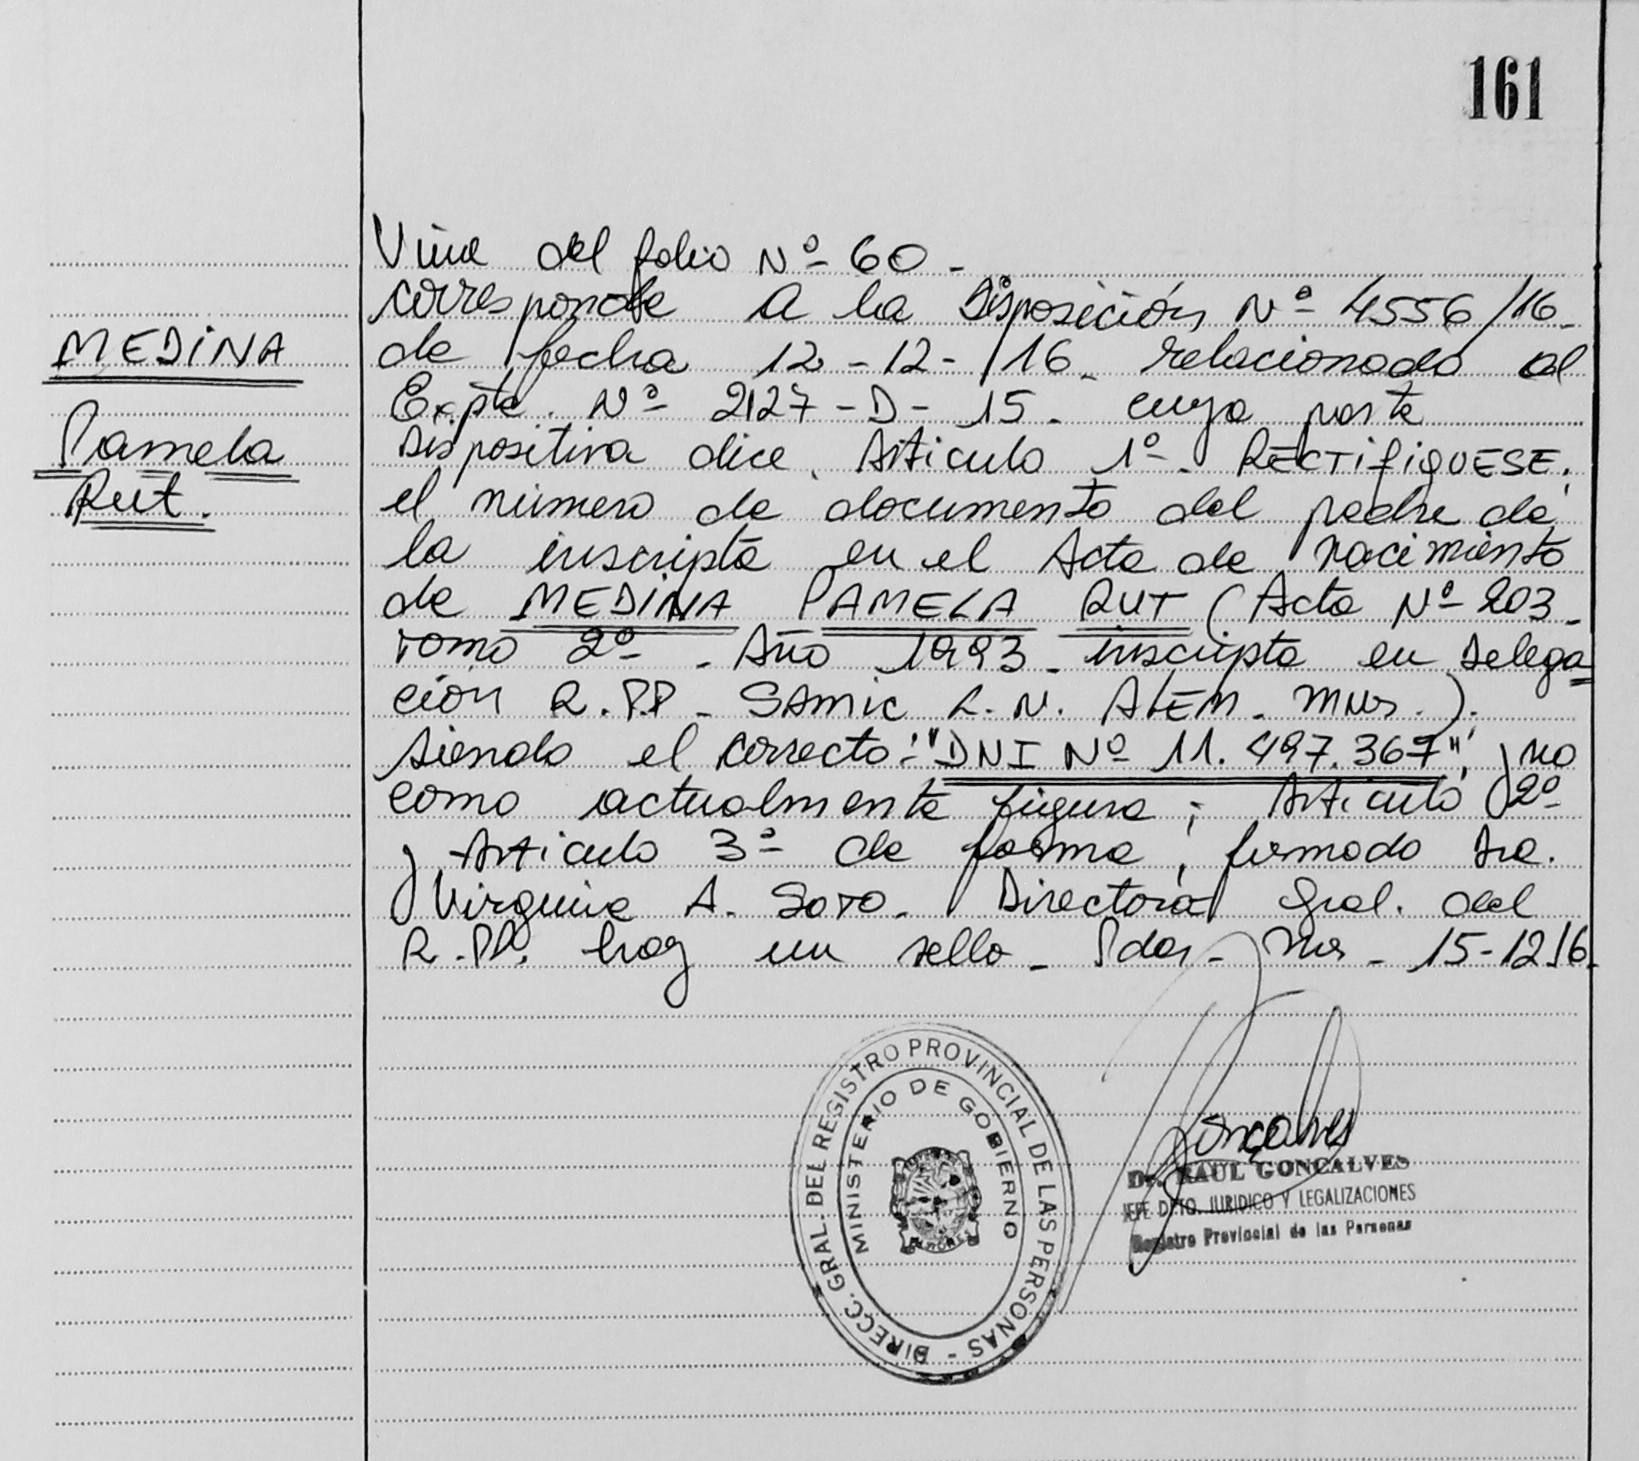 161
Viene del folio Nº 60 -
corresponde a la Disposición Nº 4556/16-
MEDINA
de fecha 12-12-16- relacionado al
Expte. Nº 2127-D-15- cuya parte
Pamela
Dispositiva dice. Articulo 1º- RECTIFIQUESE,
Rut.
el número de documento del padre de
la inscripta en el Acta de nacimiento
de MEDINA PAMELA RUT (Acta Nº 203-
Tomo 2º- Año 1993- inscripta en Delega
ción R.P.P- SAMIC L.N. ALEM- Mnes.).
siendo el correcto: "DNI Nº 11.497.367", y no
como actualmente figura; Articulo 2º
y Articulo 3º de forma, firmado Sra.
Virginia A. Soto- Directora Gral. del
R.P.P. hay un sello- Pdas- Mnes- 15-12-16.
DIRECC. GRAL. DEL REGISTRO PROVINCIAL DE LAS PERSONAS -
MINISTERIO DE GOBIERNO
Goncalves
Dr. RAUL GONCALVES
JEFE DPTO. JURIDICO Y LEGALIZACIONES
Registro Provincial de las Personas